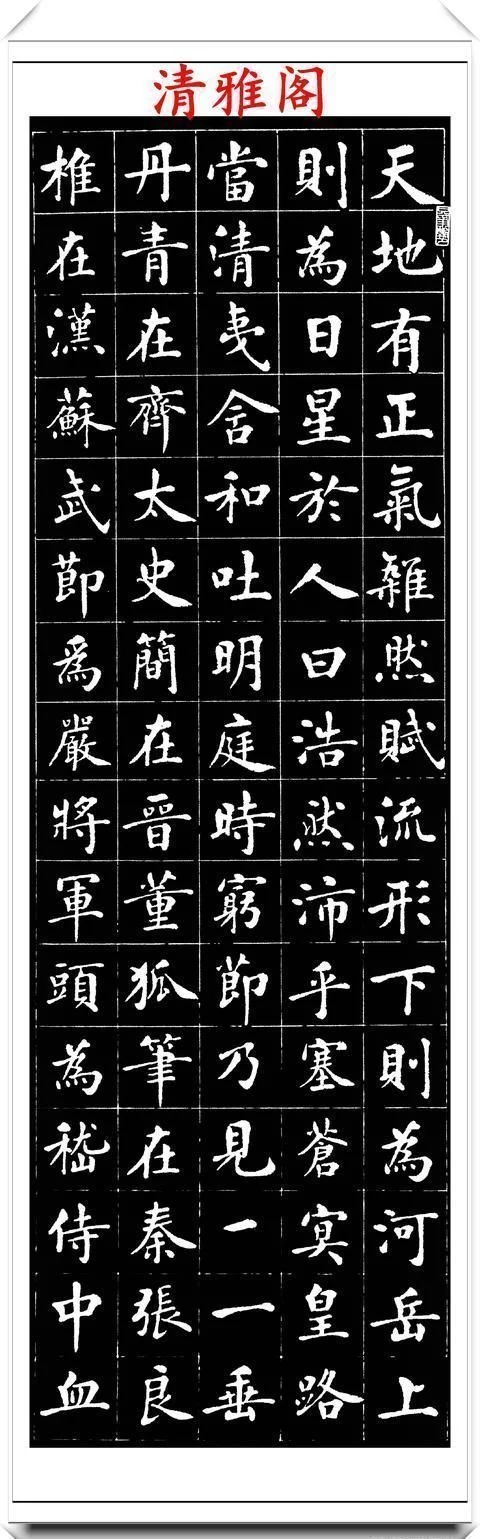 清雅阁
天地有正氣雜然賦流形下則為河岳上
則為日星於人曰浩然沛乎塞蒼冥皇路
當清夷含和吐明庭時窮節乃見一一垂
丹青在齊太史簡在晉董狐筆在秦張良
椎在漢蘇武節為嚴將軍頭為嵇侍中血